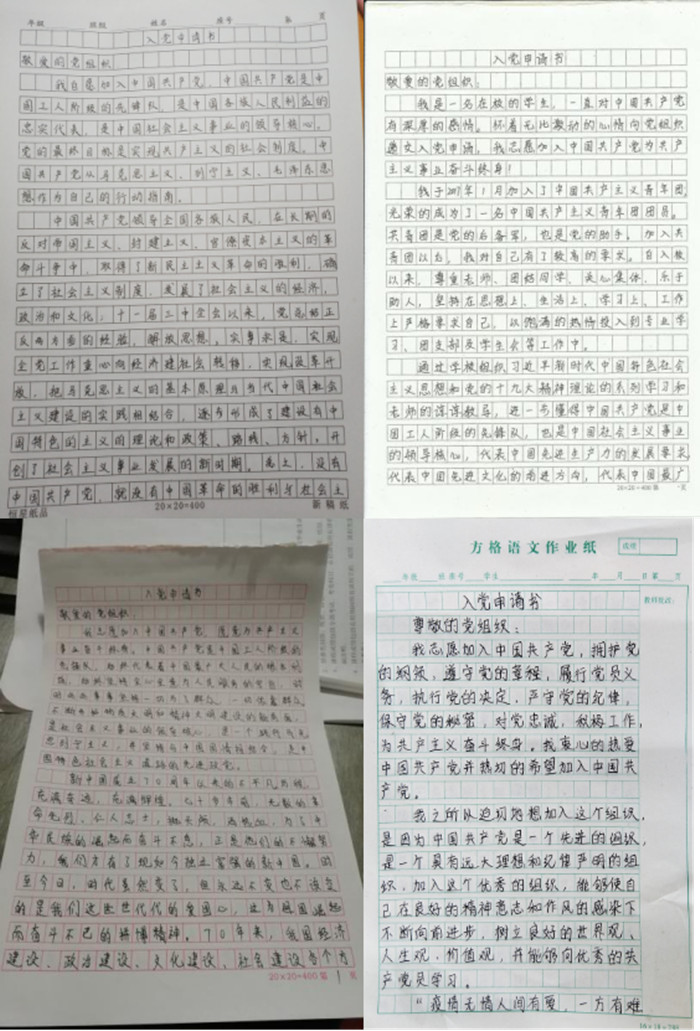 年级 班级 姓名 座号 第 页
入党申请书
敬爱的党组织：
我自愿加入中国共产党，中国共产党是中
国工人阶级的先锋队，是中国各族人民利益的
忠实代表，是中国社会主义事业的领导核心。
党的最终目标是实现共产主义的社会制度。中
国共产党以马克思主义、列宁主义、毛泽东思
想作为自己的行动指南。
中国共产党领导全国各族人民，在长期的
反对帝国主义、封建主义、官僚资本主义的革
命斗争中，取得了新民主主义革命的胜利，确
立了社会主义制度，发展了社会主义的经济，
政治和文化，十一届三中全会以来，党总结正
反两方面的经验，解放思想，实事求是，实现
全党工作重心向经济建社会转移，实现改革开
放，把马克思主义的基本原理与当代中国社会
主义建设的实践相结合，逐步形成了建设有中
国特色的主义的理论和政策、路线、方针，开
创了社会主义事业发展的新时期。总之，没有
中国共产党，就没有中国革命的胜利与社会主
恒星纸品 20×20=400 新稿纸
入党申请书
敬爱的党组织：
我是一名在校的学生，一直对中国共产党
有深厚的感情。怀着无比激动的心情向党组织
递交入党申请，我志愿加入中国共产党为共产
主义事业奋斗终身！
我于 年1月加入了中国共产主义青年团，
光荣的成为了一名中国共产主义青年团团员。
共青团是党的后备军，也是党的助手。加入共
青团以后，我对自己有了较高的要求。自入校
以来，尊重老师、团结同学、关心集体、乐于
助人，坚持在思想上、生活上、学习上、工作
上严格要求自己，以饱满的热情投入到专业学
习、团支部及学生会等工作中。
通过学校组织习近平新时代中国特色社会
主义思想和党的十九大精神理论的系列学习和
老师的谆谆教导，进一步懂得中国共产党是中
国工人阶级的先锋队，也是中国社会主义事业
的领导核心，代表中国先进生产力的发展要求
代表中国先进文化的前进方向，代表中国最广
20×20=400 第 页
入党申请书
敬爱的党组织：
我志愿加入中国共产党，愿意为共产主义
事业奋斗终身。中国共产党是中国工人阶级的
先锋队，
是社会主义事业的领导核心，
中国特色社会主义道路的先进政党。
新中国成立70周年以来的不平凡历程，
充满奋进，充满辉煌。七十多年前，无数的革
命先烈，仁人志士，抛头颅，洒热血，为了中
华民族的崛起而奋斗不息，正是他们的不懈努
力，我们才有了现如今独立富强的新中国。时
至今日，时代虽然变了，但永远不变也不该变
的是我们这些世代代的爱国心，这为祖国崛起
而奋斗不已的拼搏精神。70年来，我国经济
建设、政治建设、文化建设、社会建设各个方
20×20=400 第 1 页
方格语文作业纸 成绩
年级 班 座号 学生 年 月 日 第 页
教师批改：
入党申请书
尊敬的党组织：
我志愿加入中国共产党，拥护党
的纲领，遵守党的章程，履行党员义
务，执行党的决定，严守党的纪律，
保守党的秘密，对党忠诚，积极工作，
为共产主义奋斗终身。我衷心的热爱
中国共产党并热切的希望加入中国共
产党。
我之所以迫切地想加入这个组织，
是因为中国共产党是一个先进的组织，
是一个具有远大理想和纪律严明的组
织，加入这个优秀的组织，能够使自
己在良好的精神意志和作风的感染下
不断向前进步，树立良好的世界观、
人生观、价值观，并能够向优秀的共
产党员学习。
“疫情无情人间有爱，一方有难